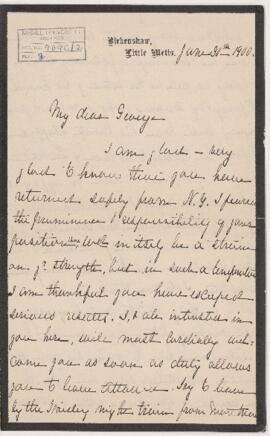 Birkenshaw,
Little Metis.
June 30th 1900.
My dear George
I am glad - very
glad to know that you have
returned safely from N.Y. I
the prominence & responsibility of your
position will be a strain
on yr strength, but in such a
I am thankful you have escaped
serious results. I, & all interested in
you here, will most cordially wel-
come you as soon as duty allows
you to leave Ottawa. Try to leave
by the Friday night train from